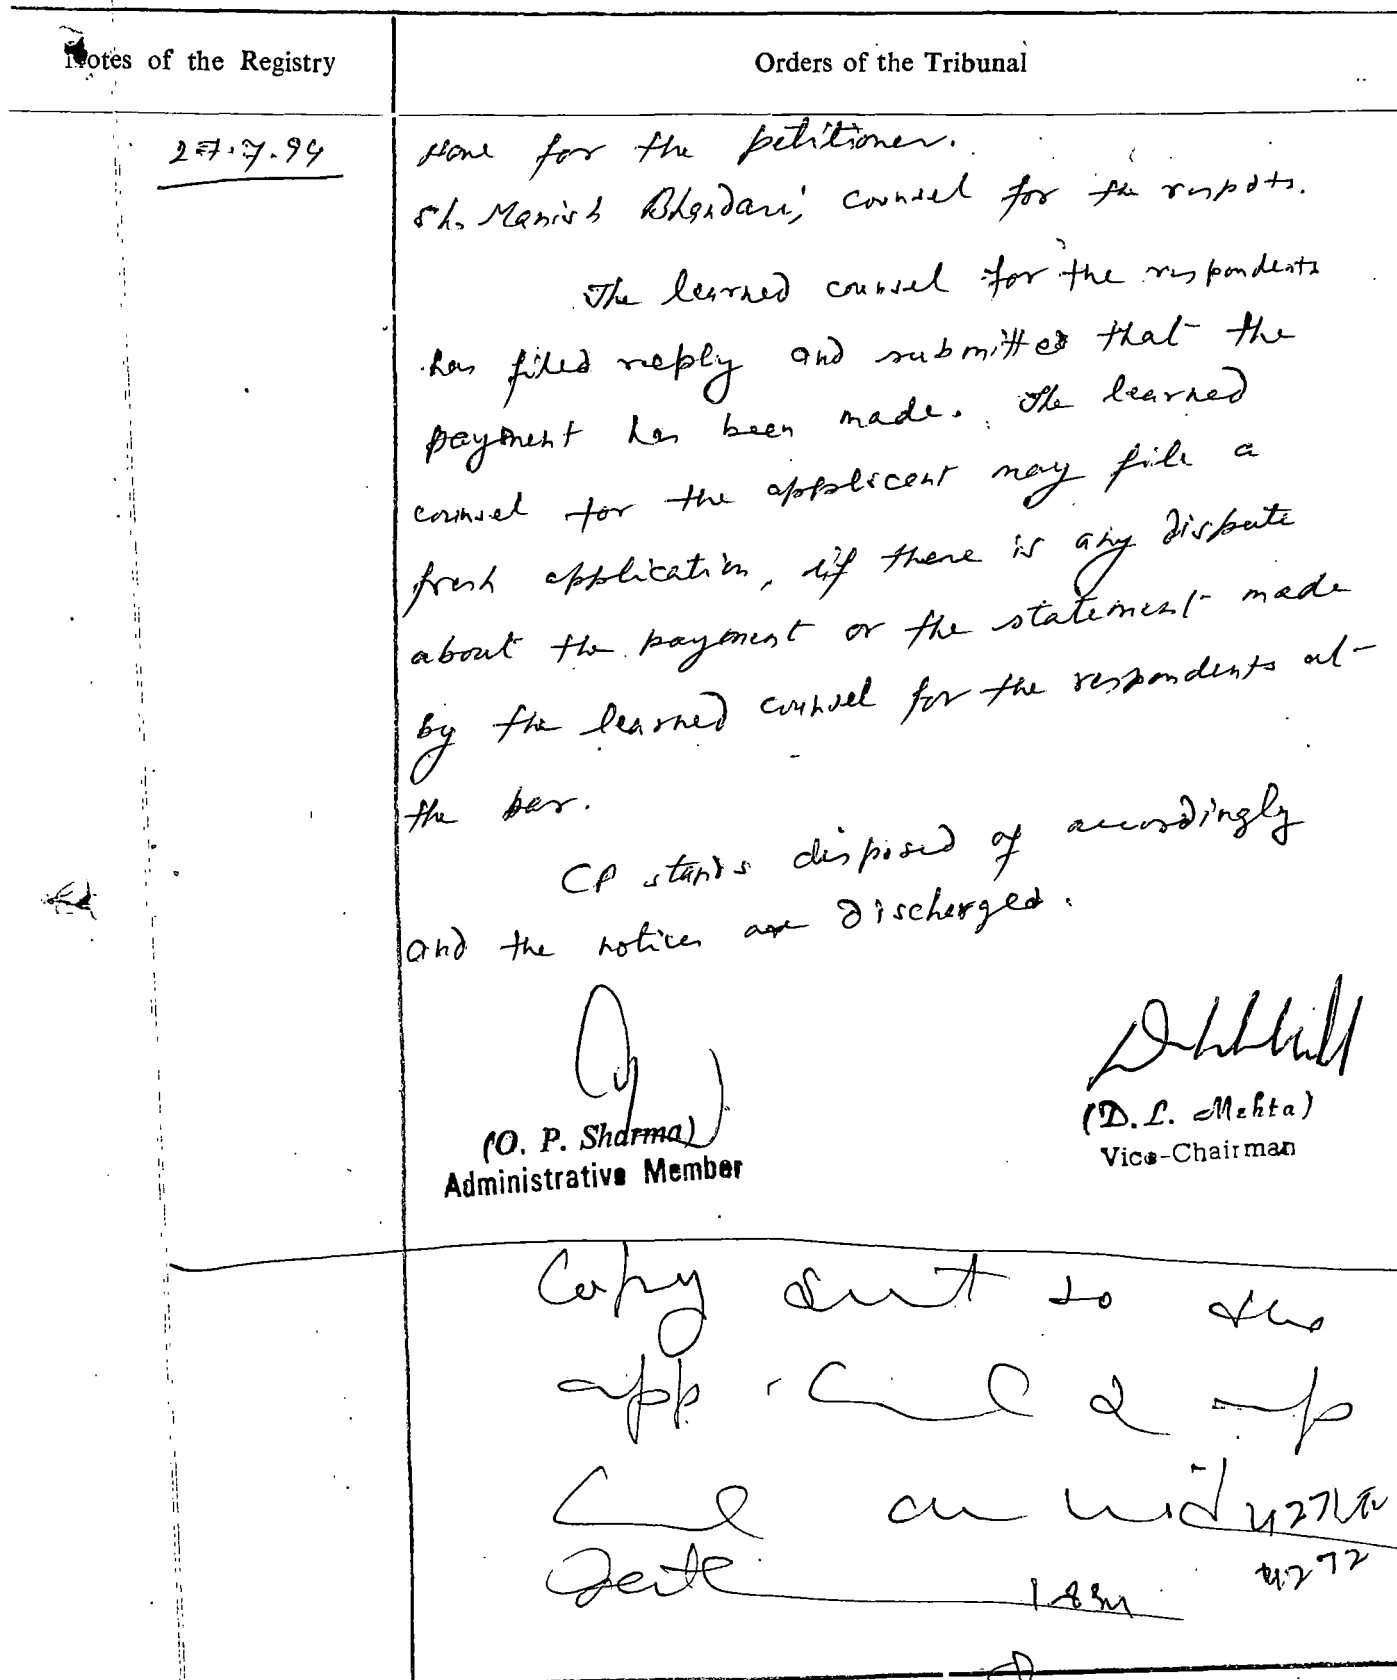 Notes of the Registry
Orders of the Tribunal
27.7.94
None for the petitioner.
Sh. Manish Bhandari, counsel for the respdts.
The learned counsel for the respondents
has filed reply and submitted that the
payment has been made. The learned
counsel for the applicant may file a
fresh application, if there is any dispute
about the payment or the statement made
by the learned counsel for the respondents at
the bar.
CP stands disposed of accordingly
and the notices are discharged.
(O. P. Sharma)
Administrative Member
(D. L. Mehta)
Vice-Chairman
Copy sent to the
app.